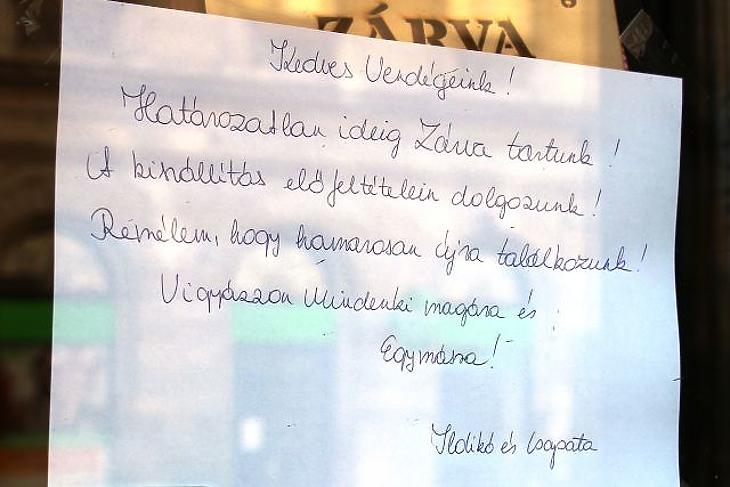 ZÁRVA
Kedves Vendégeink!
Határozatlan ideig Zárva tartunk!
A kiszállítás előfeltételein dolgozunk!
Remélem, hogy hamarosan újra találkozunk!
Vigyázzon Mindenki magára és
Egymásra!
Ildikó és Csapata